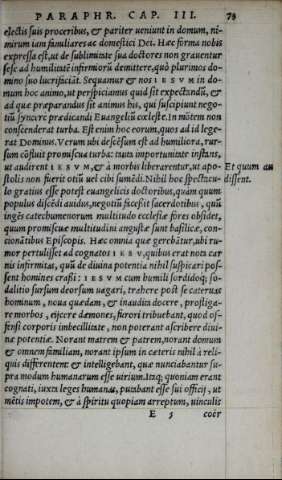 PARAPHR. CAP. III. 73
electis suis proceribus, & pariter ueniunt in domum, ni-
mirum iam familiares ac domestici Dei. Hæc forma nobis
expressa est, ut de sublimitate sua doctores non grauentur
sese ad humilitatē infirmiorū demittere, quò plurimos do-
mino suo lucrifaciāt. Sequamur & nos IESVM in do-
mum hoc animo, ut perspiciamus quid sit expectandū, &
ad quæ præparandus sit animus his, qui suscipiunt nego-
tiū syncere prædicandi Euangelij cœleste. In mōtem non
conscenderat turba. Est enim hoc eorum, quos ad id lege-
rat Dominus. Verum ubi descēsum est ad humiliora, rur-
sum cōfluit promiscua turba: tutti importuniter instans,
ut audirent IESVM, & à morbis liberarentur, ut apo-
stolis non fuerit otiū uel cibi sumēdi. Nihil hoc spectacu-
lo gratius esse potest euangelicis doctoribus, quàm quum
populus discēdi auidus, negotiū facessit sacerdotibus, quū
ingēs catechumenorum multitudo ecclesiæ fores obsidet,
quum promiscuæ multitudini angustæ sunt basilicæ, con-
cionātibus Episcopis. Hæc omnia quæ gerebātur, ubi ru-
mor pertulisset ad cognatos IESV, quibus erat nota car
nis infirmitas, quū de diuina potentia nihil suspicari pos-
sent homines crassi: IESVM cum humili sordidoq; so-
dalitio sursum deorsum uagari, trahere post se cateruas
hominum, noua quædam, & inaudita docere, profliga-
re morbos, eijcere dæmones, furori tribuebant, quod of-
fensi corporis imbecillitate, non poterant ascribere diui-
næ potentiæ. Norant matrem & patrem, norant domum
& omnem familiam, norant ipsum in cæteris nihil à reli-
quis differentem: & intelligebant, quæ nunciabantur su-
pra modum humanarum esse uirium. Itaq; quoniam erant
cognati, iuxta leges humanas, putabant esse sui officij, ut
mētis impotem, & à spiritu quopiam arreptum, uinculis
E 5 coër
Et quum au
dissent.